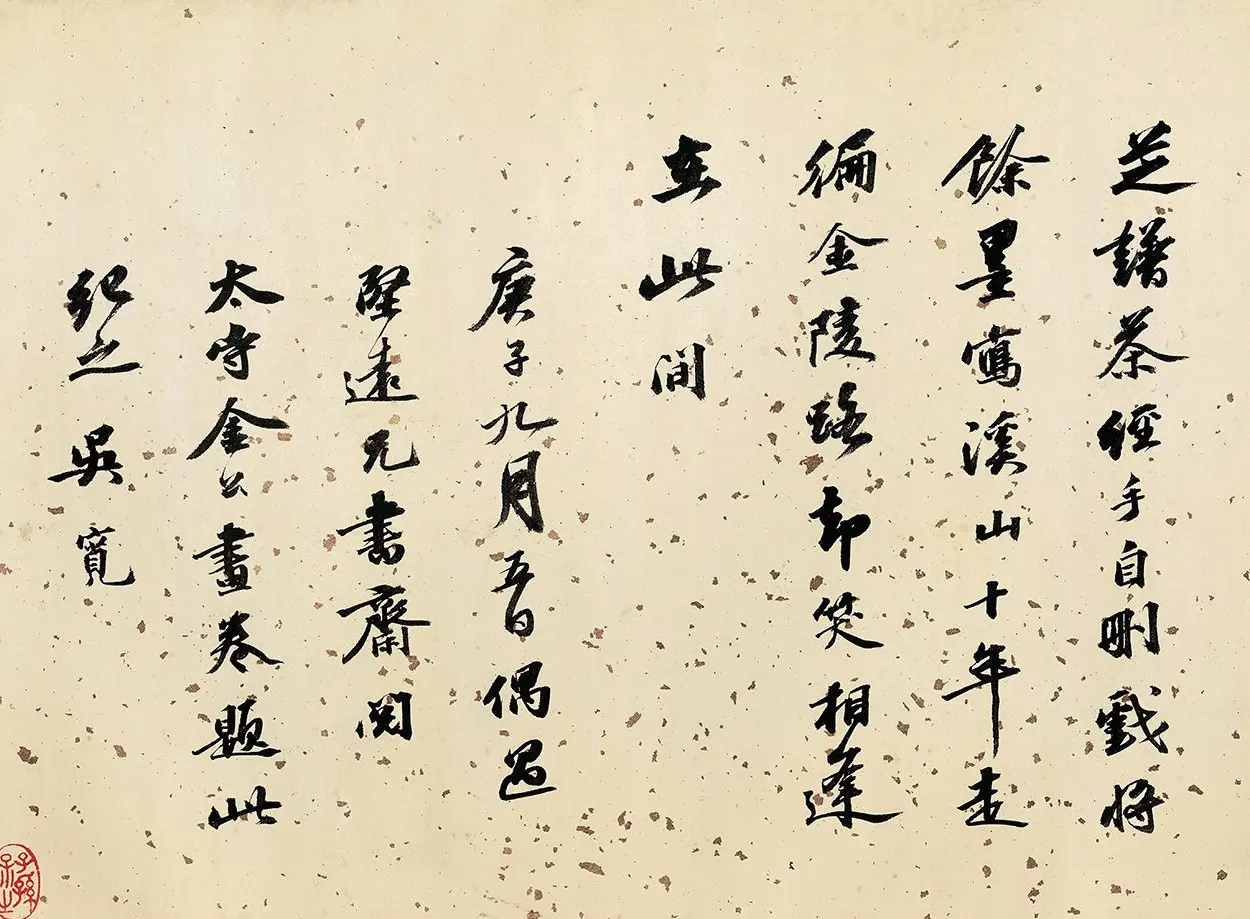 芝譜茶經手自刪戲將
餘墨寫溪山十年走
徧金陵路却笑相逢
在此間
庚子九月五日偶過
堅遠兄書齋閱
太守金公畫卷題此
紀之吳寬